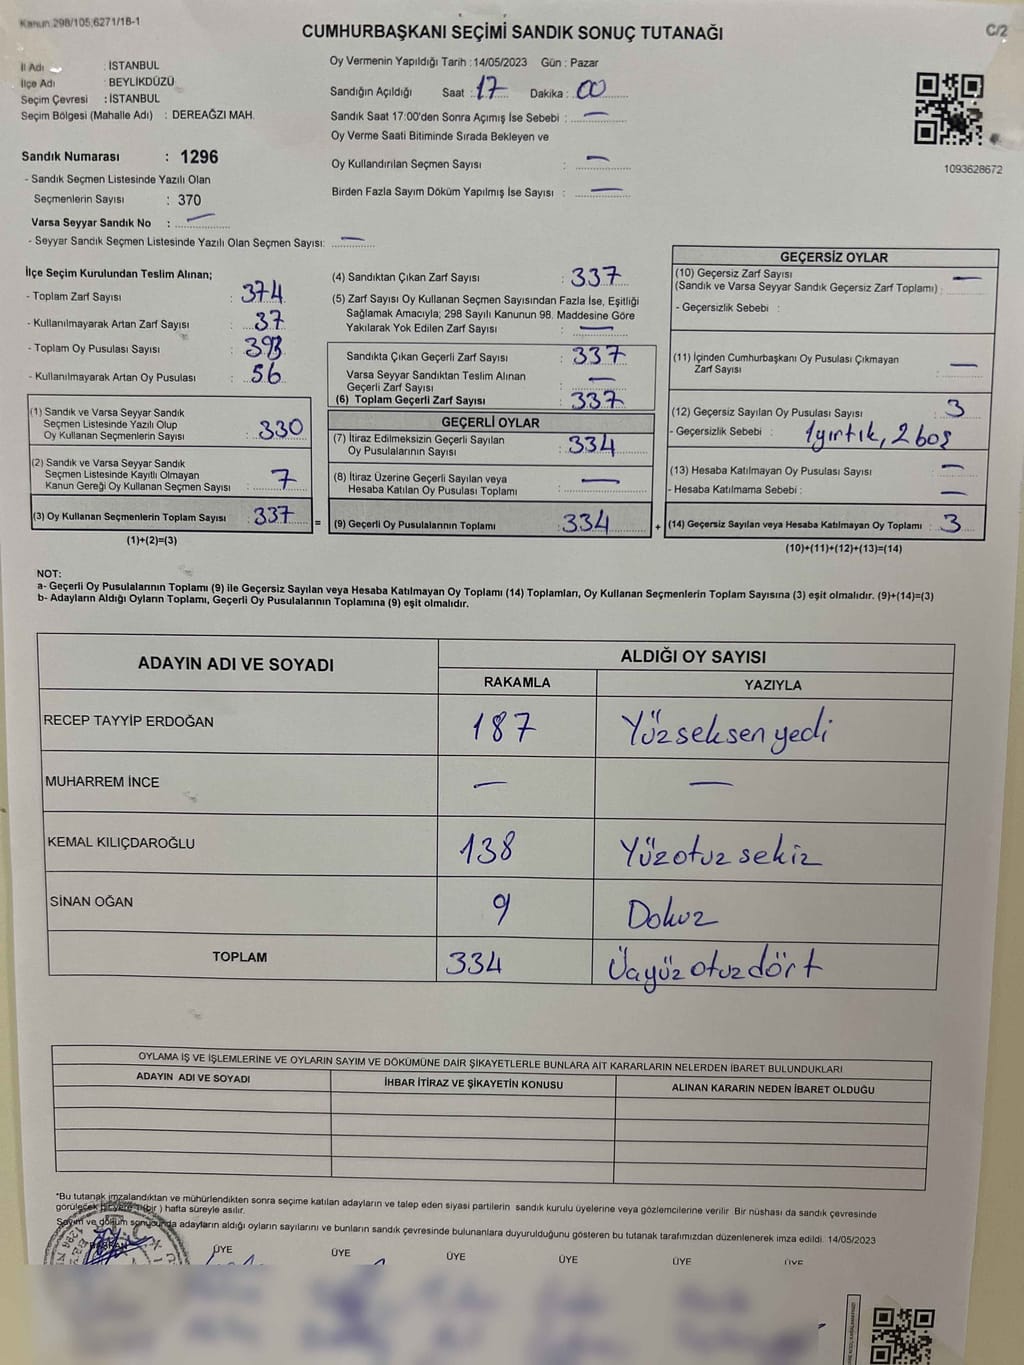 Kanun 298/105,6271/18-1
CUMHURBAŞKANI SEÇİMİ SANDIK SONUÇ TUTANAĞI
C/2
İl Adı : İSTANBUL
İlçe Adı : BEYLİKDÜZÜ
Seçim Çevresi : İSTANBUL
Seçim Bölgesi (Mahalle Adı) : DEREAĞZI MAH.
Sandık Numarası : 1296
- Sandık Seçmen Listesinde Yazılı Olan
Seçmenlerin Sayısı : 370
Varsa Seyyar Sandık No : —
- Seyyar Sandık Seçmen Listesinde Yazılı Olan Seçmen Sayısı: —
Oy Vermenin Yapıldığı Tarih : 14/05/2023 Gün : Pazar
Sandığın Açıldığı Saat : 17 Dakika : 00
Sandık Saat 17:00'den Sonra Açımış İse Sebebi : —
Oy Verme Saati Bitiminde Sırada Bekleyen ve
Oy Kullandırılan Seçmen Sayısı : —
Birden Fazla Sayım Döküm Yapılmış İse Sayısı : —
1093628672
İlçe Seçim Kurulundan Teslim Alınan;
- Toplam Zarf Sayısı : 374
- Kullanılmayarak Artan Zarf Sayısı : 37
- Toplam Oy Pusulası Sayısı : 393
- Kullanılmayarak Artan Oy Pusulası : 56
(1) Sandık ve Varsa Seyyar Sandık
Seçmen Listesinde Yazılı Olup
Oy Kullanan Seçmenlerin Sayısı : 330
(2) Sandık ve Varsa Seyyar Sandık
Seçmen Listesinde Kayıtlı Olmayan
Kanun Gereği Oy Kullanan Seçmen Sayısı : 7
(3) Oy Kullanan Seçmenlerin Toplam Sayısı : 337 =
(1)+(2)=(3)
(4) Sandıktan Çıkan Zarf Sayısı : 337
(5) Zarf Sayısı Oy Kullanan Seçmen Sayısından Fazla İse, Eşitliği
Sağlamak Amacıyla; 298 Sayılı Kanunun 98. Maddesine Göre
Yakılarak Yok Edilen Zarf Sayısı : —
Sandıkta Çıkan Geçerli Zarf Sayısı : 337
Varsa Seyyar Sandıktan Teslim Alınan
Geçerli Zarf Sayısı : —
(6) Toplam Geçerli Zarf Sayısı : 337
GEÇERLİ OYLAR
(7) İtiraz Edilmeksizin Geçerli Sayılan
Oy Pusulalarının Sayısı : 334
(8) İtiraz Üzerine Geçerli Sayılan veya
Hesaba Katılan Oy Pusulası Toplamı : —
(9) Geçerli Oy Pusulalarının Toplamı : 334 +
GEÇERSİZ OYLAR
(10) Geçersiz Zarf Sayısı —
(Sandık ve Varsa Seyyar Sandık Geçersiz Zarf Toplamı) :
- Geçersizlik Sebebi :
(11) İçinden Cumhurbaşkanı Oy Pusulası Çıkmayan
Zarf Sayısı : —
(12) Geçersiz Sayılan Oy Pusulası Sayısı : 3
- Geçersizlik Sebebi : 1 yırtık, 2 boş
(13) Hesaba Katılmayan Oy Pusulası Sayısı : —
- Hesaba Katılmama Sebebi : —
(14) Geçersiz Sayılan veya Hesaba Katılmayan Oy Toplamı : 3
(10)+(11)+(12)+(13)=(14)
NOT:
a- Geçerli Oy Pusulalarının Toplamı (9) ile Geçersiz Sayılan veya Hesaba Katılmayan Oy Toplamı (14) Toplamları, Oy Kullanan Seçmenlerin Toplam Sayısına (3) eşit olmalıdır. (9)+(14)=(3)
b- Adayların Aldığı Oyların Toplamı, Geçerli Oy Pusulalarının Toplamına (9) eşit olmalıdır.
ADAYIN ADI VE SOYADI
ALDIĞI OY SAYISI
RAKAMLA YAZIYLA
RECEP TAYYİP ERDOĞAN 187 Yüzseksen yedi
MUHARREM İNCE — —
KEMAL KILIÇDAROĞLU 138 Yüzotuz sekiz
SİNAN OĞAN 9 Dokuz
TOPLAM 334 Üçyüz otuzdört
OYLAMA İŞ VE İŞLEMLERİNE VE OYLARIN SAYIM VE DÖKÜMÜNE DAİR ŞİKAYETLERLE BUNLARA AİT KARARLARIN NELERDEN İBARET BULUNDUKLARI
ADAYIN ADI VE SOYADI İHBAR İTİRAZ VE ŞİKAYETİN KONUSU ALINAN KARARIN NEDEN İBARET OLDUĞU
*Bu tutanak imzalandıktan ve mühürlendikten sonra seçime katılan adayların ve talep eden siyasi partilerin sandık kurulu üyelerine veya gözlemcilerine verilir Bir nüshası da sandık çevresinde
görülecek bir yere 1 (bir ) hafta süreyle asılır.
Sayım ve döküm sonucunda adayların aldığı oyların sayılarını ve bunların sandık çevresinde bulunanlara duyurulduğunu gösteren bu tutanak tarafımızdan düzenlenerek imza edildi. 14/05/2023
BAŞKAN ÜYE ÜYE ÜYE ÜYE ÜYE ÜYE